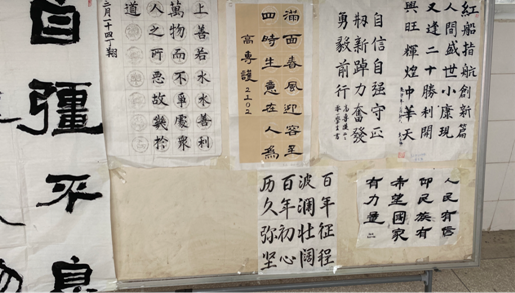 红船指航創新篇
人間盛世小康現
又逢二十勝利開
興旺輝煌中華天
自信自强守正
刱新踔力奮發
勇毅前行
滿面春風迎客至
四時生意在人為
上善若水水善利
萬物而不爭處衆
人之所惡故幾於
道
自彊不息
人民有信
仰民族有
希望国家
有力量
百年征程
波澜壮阔
百年初心
历久弥坚